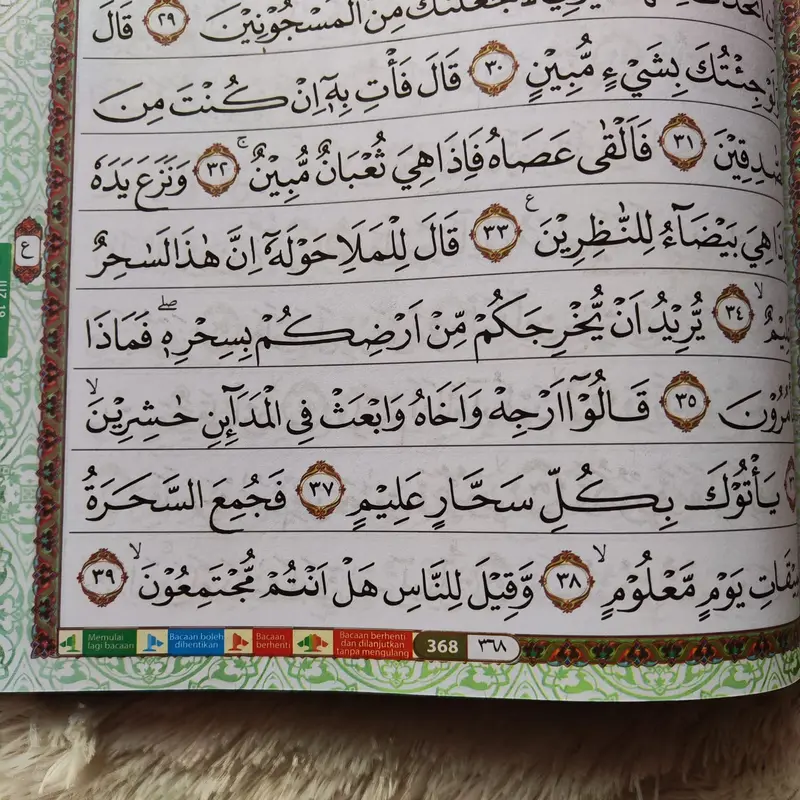 لَاَجْعَلَنَّكَ مِنَ الْمَسْجُوْنِيْنَ ٢٩ قَالَ
جِئْتُكَ بِشَيْءٍ مُّبِيْنٍ ٣٠ قَالَ فَأْتِ بِهٖٓ اِنْ كُنْتَ مِنَ
صّٰدِقِيْنَ ٣١ فَاَلْقٰى عَصَاهُ فَاِذَا هِيَ ثُعْبَانٌ مُّبِيْنٌ ۚ ٣٢ وَنَزَعَ يَدَهٗ
ذَا هِيَ بَيْضَاۤءُ لِلنّٰظِرِيْنَ ࣖ ٣٣ قَالَ لِلْمَلَاِ حَوْلَهٗٓ اِنَّ هٰذَا لَسٰحِرٌ
يْمٌ ۙ ٣٤ يُّرِيْدُ اَنْ يُّخْرِجَكُمْ مِّنْ اَرْضِكُمْ بِسِحْرِهٖۖ فَمَاذَا
مُرُوْنَ ٣٥ قَالُوْٓا اَرْجِهْ وَاَخَاهُ وَابْعَثْ فِى الْمَدَاۤىِٕنِ حٰشِرِيْنَ ۙ
يَأْتُوْكَ بِكُلِّ سَحَّارٍ عَلِيْمٍ ٣٧ فَجُمِعَ السَّحَرَةُ
يْقَاتِ يَوْمٍ مَّعْلُوْمٍ ۙ ٣٨ وَّقِيْلَ لِلنَّاسِ هَلْ اَنْتُمْ مُّجْتَمِعُوْنَ ۙ ٣٩
ع
JUZ 19
Memulai lagi bacaan
Bacaan boleh dihentikan
Bacaan berhenti
Bacaan berhenti dan dilanjutkan tanpa mengulang
368 ٣٦٨